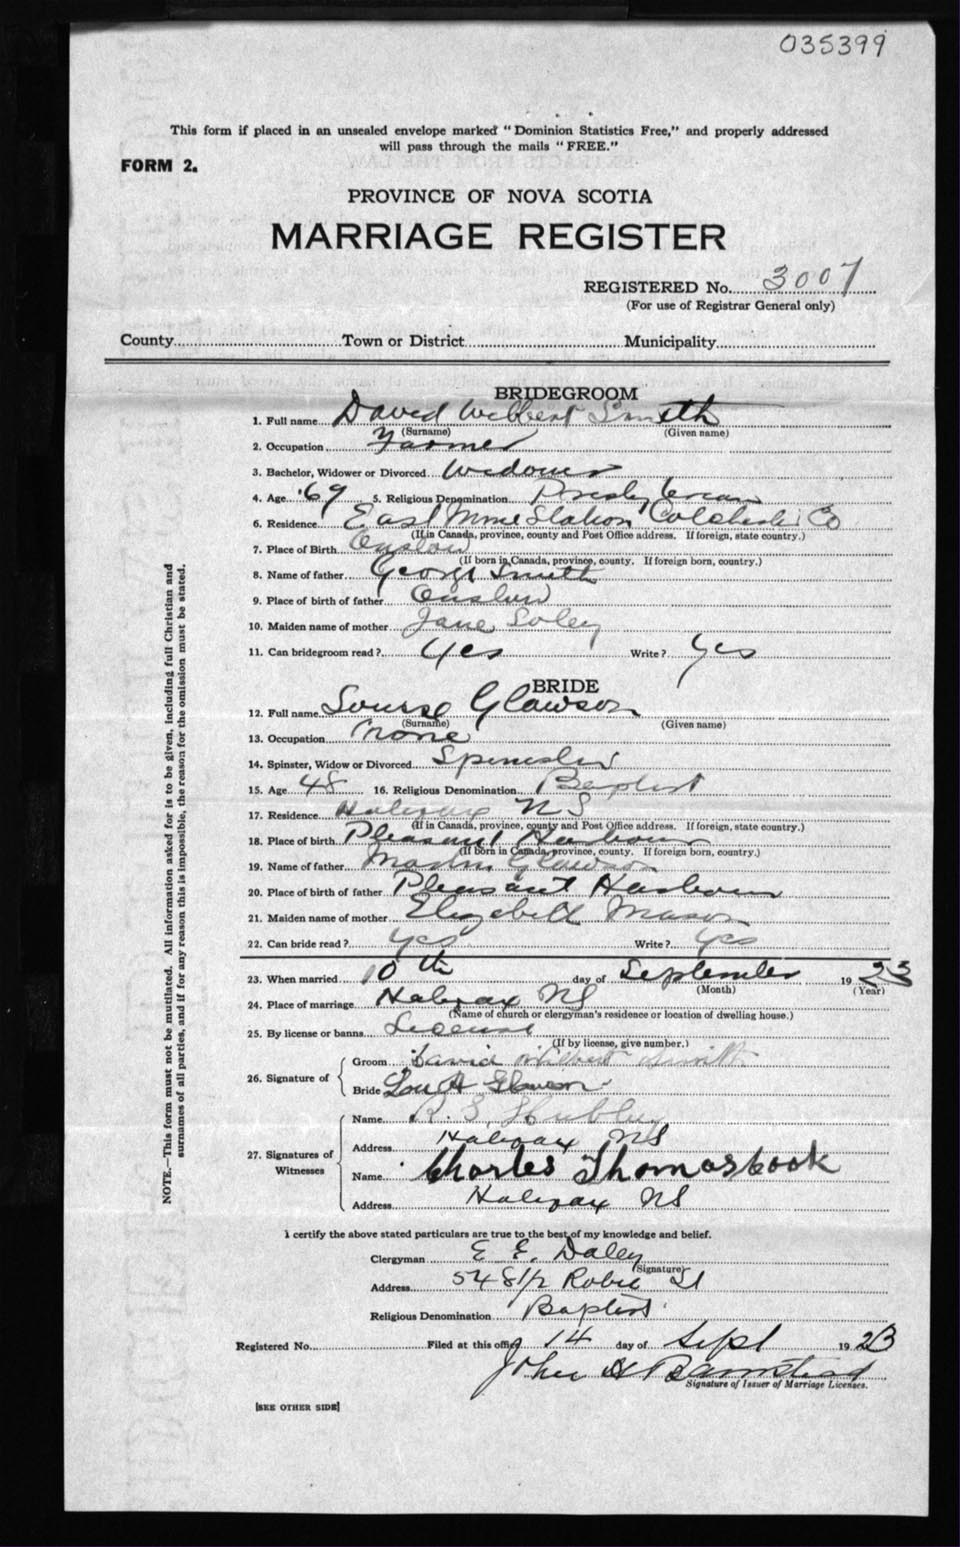 035399
This form if placed in an unsealed envelope marked "Dominion Statistics Free," and properly addressed
will pass through the mails "FREE."
FORM 2.
PROVINCE OF NOVA SCOTIA
MARRIAGE REGISTER
REGISTERED No. 3007
(For use of Registrar General only)
County Town or District Municipality
BRIDEGROOM
1. Full name David Wilbert Smith
(Surname) (Given name)
2. Occupation Farmer
3. Bachelor, Widower or Divorced Widower
4. Age 69 5. Religious Denomination Presbyterian
6. Residence East Mine Station Colchester Co
(If in Canada, province, county and Post Office address. If foreign, state country.)
7. Place of Birth Onslow
(If born in Canada, province, county. If foreign born, country.)
8. Name of father George Smith
9. Place of birth of father Onslow
10. Maiden name of mother Jane Soley
11. Can bridegroom read? Yes Write? Yes
BRIDE
12. Full name Louise Glawson
(Surname) (Given name)
13. Occupation None
14. Spinster, Widow or Divorced Spinster
15. Age 48 16. Religious Denomination Baptist
17. Residence Halifax NS
(If in Canada, province, county and Post Office address. If foreign, state country.)
18. Place of birth Pleasant Harbour
(If born in Canada, province, county. If foreign born, country.)
19. Name of father Glawson
20. Place of birth of father Pleasant Harbour
21. Maiden name of mother Elizabeth Mason
22. Can bride read? Yes Write? Yes
23. When married 10th day of September 1923
(Month) (Year)
24. Place of marriage Halifax NS
(Name of church or clergyman's residence or location of dwelling house.)
25. By license or banns License
(If by license, give number.)
26. Signature of Groom David Wilbert Smith
Bride Lou A Glawson
27. Signatures of Witnesses Name R. S. Hubley
Address Halifax NS
Name Charles Thomas Cook
Address Halifax NS
I certify the above stated particulars are true to the best of my knowledge and belief.
Clergyman E. E. Daley
(Signature)
Address 548 1/2 Robie St
Religious Denomination Baptist
Registered No. Filed at this office 14 day of Sept 1923
John H Barnstead
Signature of Issuer of Marriage Licenses.
[SEE OTHER SIDE]
NOTE.—This form must not be mutilated. All information asked for is to be given, including full Christian and
surnames of all parties, and if for any reason this is impossible, the reason for the omission must be stated.